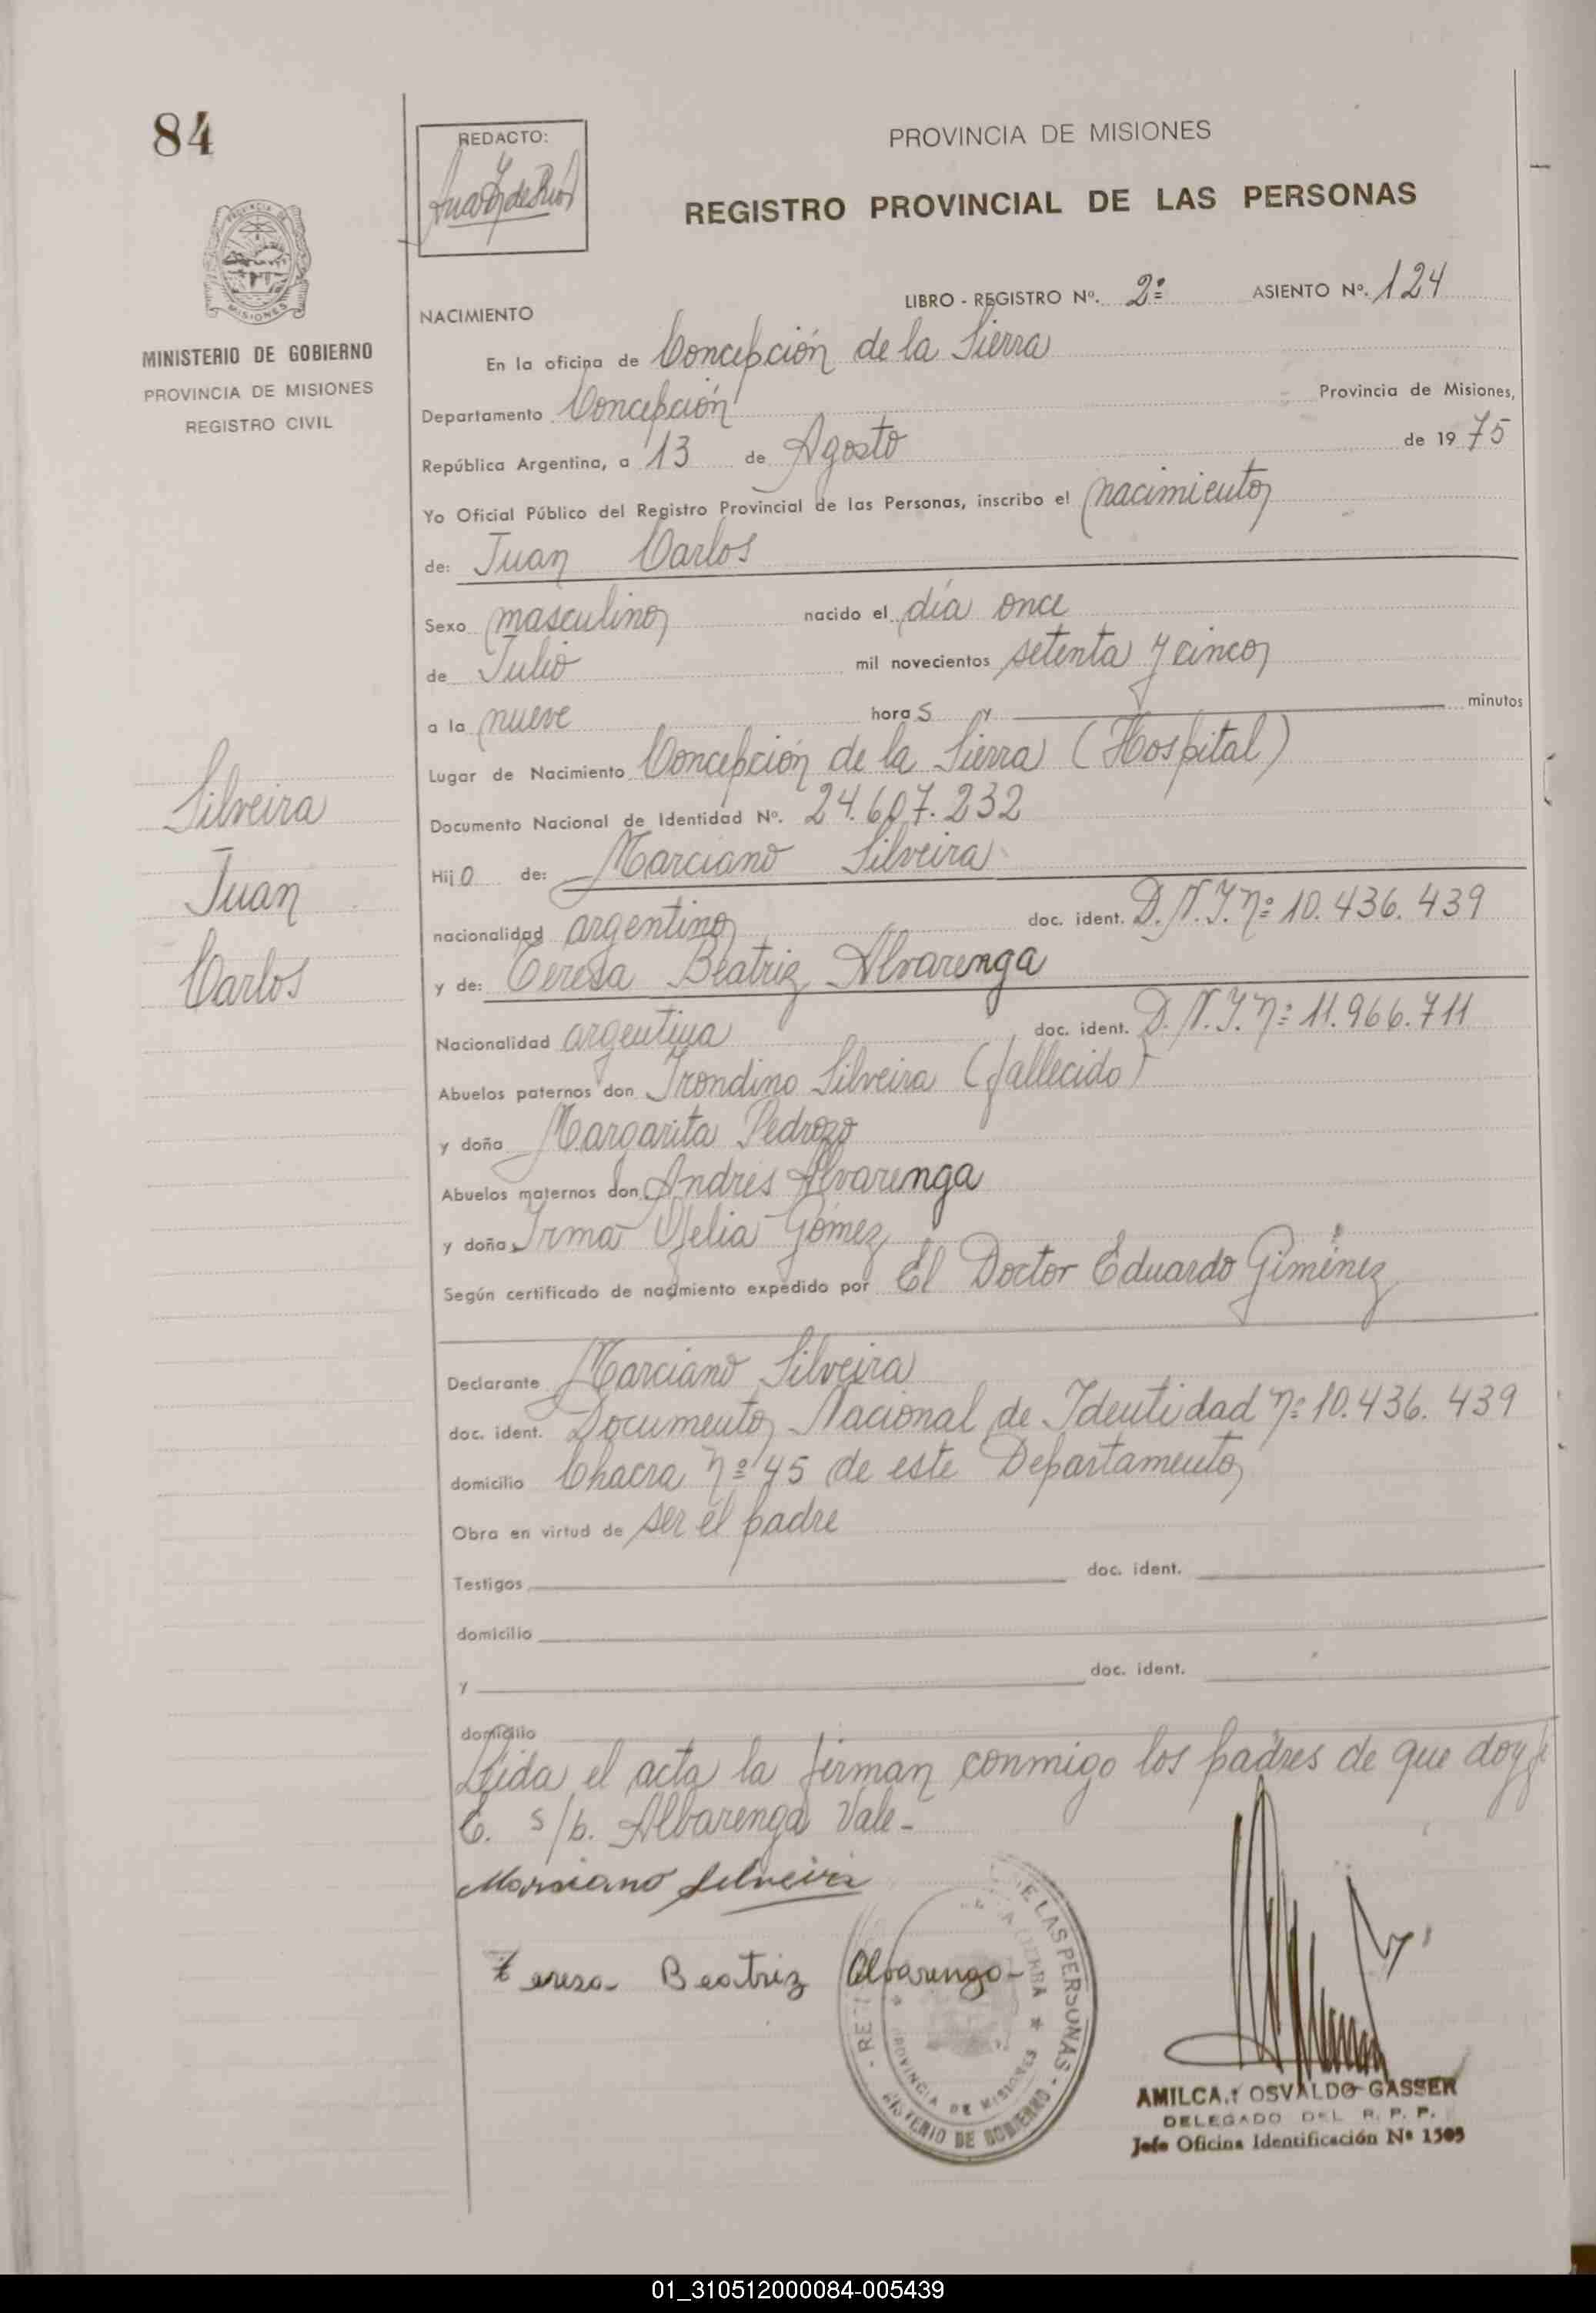 84
REDACTO:
PROVINCIA DE MISIONES
REGISTRO PROVINCIAL DE LAS PERSONAS
MISIONES
MINISTERIO DE GOBIERNO
PROVINCIA DE MISIONES
REGISTRO CIVIL
LIBRO - REGISTRO Nº. 2º ASIENTO Nº. 124
NACIMIENTO
En la oficina de Concepción de la Sierra
Departamento Concepción Provincia de Misiones,
República Argentina, a 13 de Agosto de 1975
Yo Oficial Público del Registro Provincial de las Personas, inscribo el nacimiento
de: Juan Carlos
Sexo masculino nacido el día once
de Julio mil novecientos setenta y cinco
a la nueve horas y minutos
Lugar de Nacimiento Concepción de la Sierra (Hospital)
Documento Nacional de Identidad Nº. 24.607.232
Silveira
Juan
Carlos
Hijo de: Marciano Silveira
nacionalidad argentino doc. ident. D.N.I. nº 10.436.439
y de: Teresa Beatriz Alvarenga
Nacionalidad argentina doc. ident. D.N.I. nº 11.966.711
Abuelos paternos don Irondino Silveira (fallecido)
y doña Margarita Pedrozo
Abuelos maternos don Andres Alvarenga
y doña Irma Ofelia Gómez
Según certificado de nacimiento expedido por El Doctor Eduardo Giménez
Declarante Marciano Silveira
doc. ident. Documento Nacional de Identidad nº 10.436.439
domicilio Chacra nº 45 de este Departamento
Obra en virtud de ser el padre
Testigos doc. ident.
domicilio
y doc. ident.
domicilio
Leída el acta la firman conmigo los padres de que doy fe
C. s/b. Albarenga Vale-
Marciano Silveira
Teresa Beatriz Alvarenga-
E LAS PERSONAS - MINISTERIO DE GOBIERNO
PROVINCIA DE MISIONES
AMILCAR OSVALDO GASSER
DELEGADO DEL R. P. P.
Jefe Oficina Identificación Nº 1505
01_310512000084-005439